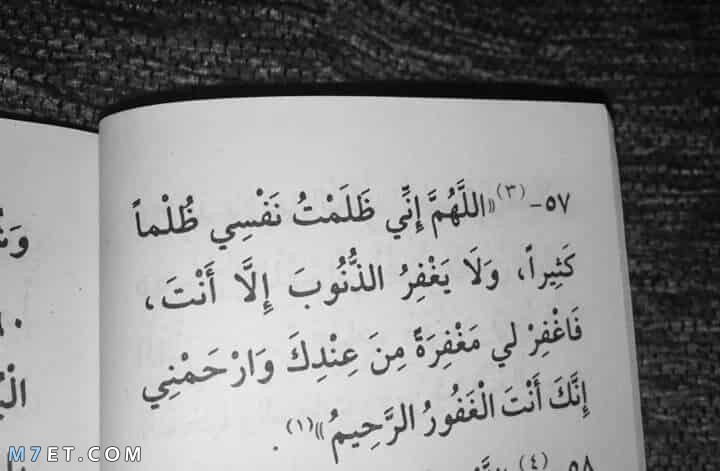 ٥٧- (٣) «اللَّهُمَّ إِنِّي ظَلَمْتُ نَفْسِي ظُلْماً
كَثِيراً، وَلَا يَغْفِرُ الذُّنُوبَ إِلَّا أَنْتَ،
فَاغْفِرْ لِي مَغْفِرَةً مِنَ عِنْدِكَ وَارْحَمْنِي
إِنَّكَ أَنْتَ الْغَفُورُ الرَّحِيمُ»(١).
٥٨- (٤)
M7ET.COM